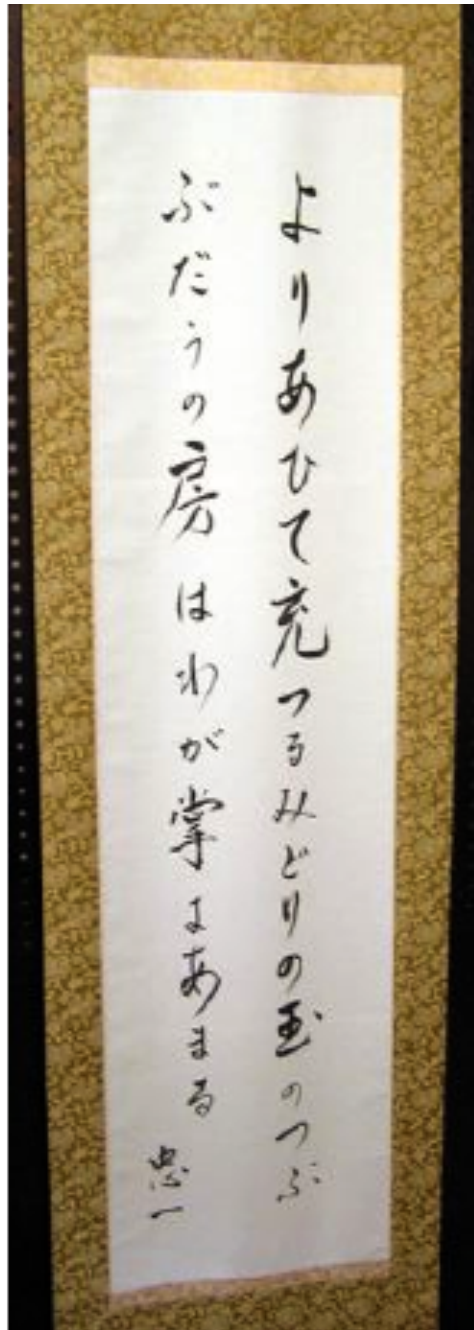 よりあひて充つるみどりの玉のつぶ
ぶだうの房はわが掌にあまる
忠一